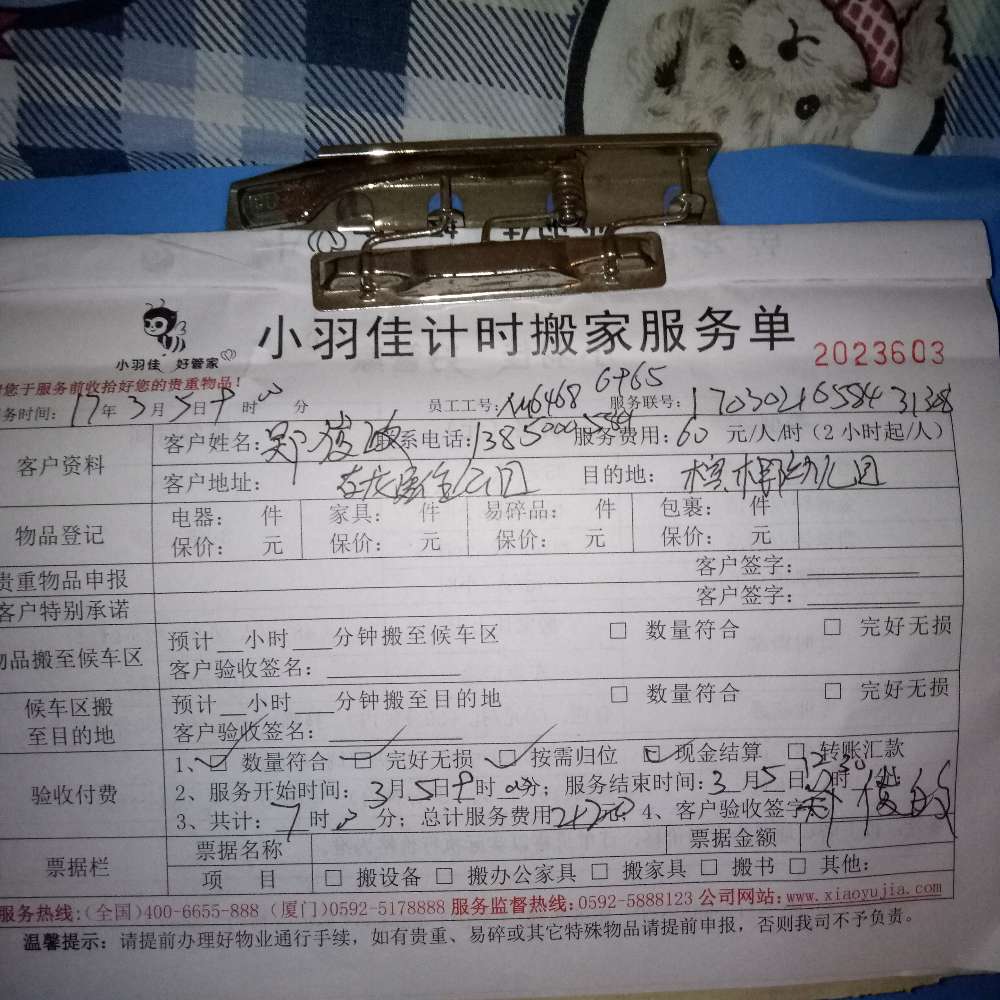 小羽佳计时搬家服务单
小羽佳 好管家
2023603
您于服务前收拾好您的贵重物品!
务时间: 17年3月5日9时 分 员工工号: 6468 6465 服务联号:
客户资料
客户姓名: 联系电话: 服务费用: 60 元/人/时 (2小时起/人)
客户地址: 目的地: 槟榔幼儿园
物品登记
电器: 件 家具: 件 易碎品: 件 包裹: 件
保价: 元 保价: 元 保价: 元 保价: 元
贵重物品申报 客户签字:
客户特别承诺 客户签字:
物品搬至候车区
预计__小时___分钟搬至候车区 □ 数量符合 □ 完好无损
客户验收签名:
候车区搬至目的地
预计__小时___分钟搬至目的地 □ 数量符合 □ 完好无损
客户验收签名:
验收付费
1、☑ 数量符合 ☑ 完好无损 ☑ 按需归位 ☑ 现金结算 □ 转账汇款
2、服务开始时间: 3月5日9时 分; 服务结束时间: 3月5日 12时30分
3、共计: 7时 分; 总计服务费用 元 4、客户验收签字
票据栏
票据名称 票据金额
项 目 □ 搬设备 □ 搬办公家具 □ 搬家具 □ 搬书 □ 其他:
服务热线:(全国)400-6655-888 (厦门)0592-5178888 服务监督热线:0592-5888123 公司网站:www.xiaoyujia.com
温馨提示: 请提前办理好物业通行手续, 如有贵重、易碎或其它特殊物品请提前申报, 否则我司不予负责。